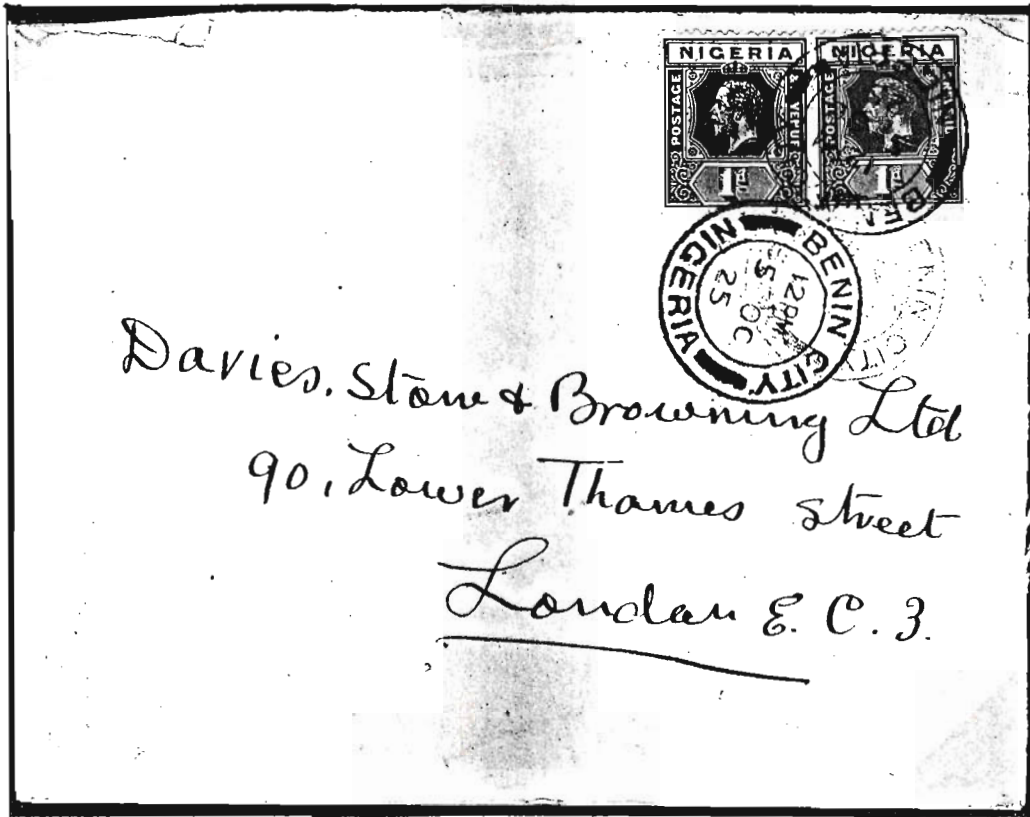 NIGERIA
POSTAGE & REVENUE
1d
NIGERIA
POSTAGE
1d
BENIN CITY
NIGERIA
12 PM
5 OC
25
BENIN CITY
Davies, Stone & Browning Ltd
90, Lower Thames Street
London E. C. 3.